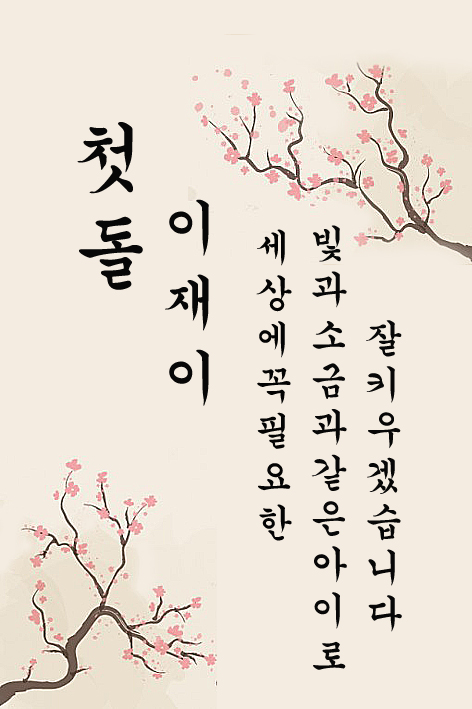 첫돌
이재이
세상에꼭필요한
빛과소금과같은아이로
잘키우겠습니다